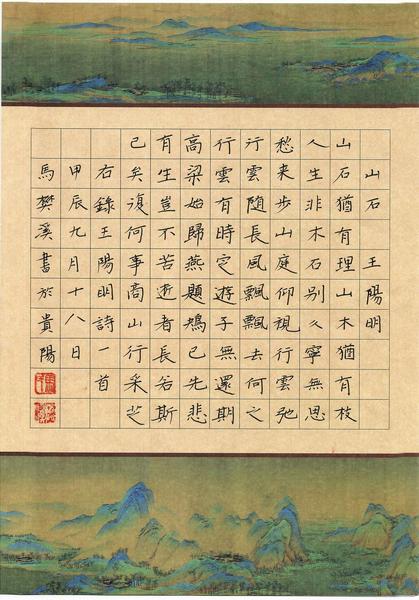 山石 王陽明
山石猶有理山木猶有枝
人生非木石别久寧無思
愁来步山庭仰視行雲弛
行雲随長風飄飄去何之
行雲有時定遊子無還期
高梁始歸燕題鴂已先悲
有生豈不苦逝者長若斯
已矣復何事商山行采芝
右錄王陽明詩一首
甲辰九月十八日
馬樊溪書於貴陽